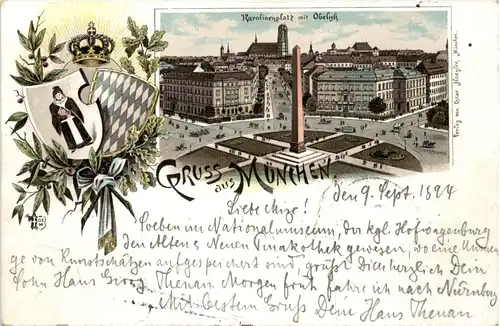 Karolinenplatz mit Obelisk
Verlag von Oscar München.
GRUSS aus MÜNCHEN.
Den 9. Sept. 1894
Liebe Mize!
Soeben im Nationalmuseum, der kgl. Hofwagenburg
den Alten & Neuen Pinakothek gewesen, wo eine Unmen-
ge von Kunstschätzen aufgespeichert sind, grüßt Dich herzlich Dein
Sohn Hans Georg Thenau. Morgen früh fahre ich nach Nürnberg
Mit bestem Gruss Dein Hans Thenau